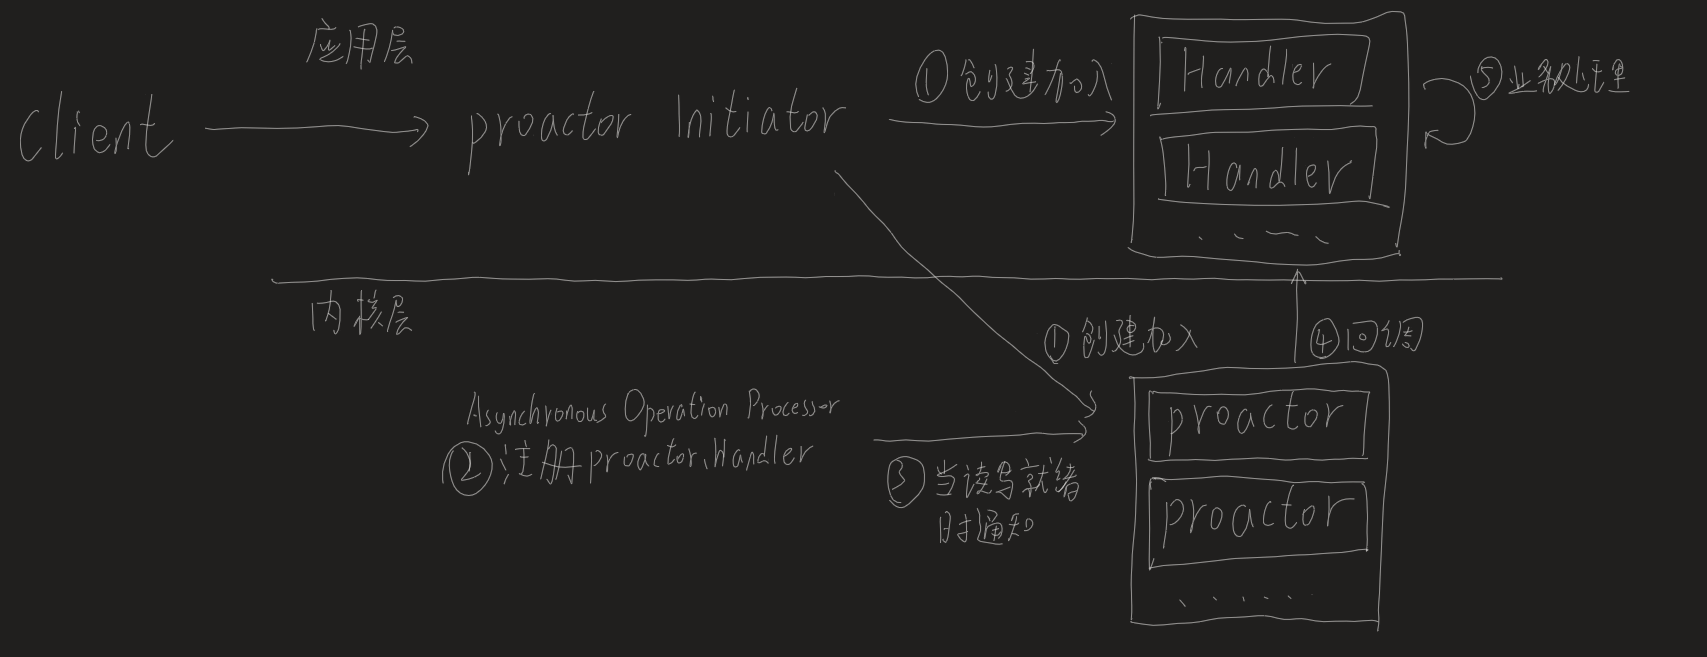 应用层
Client
proactor Initiator
①创建加入
Handler
Handler
......
⑤业务处理
内核层
①创建加入
④回调
Asynchronous Operation Processor
②注册proactor、Handler
③当读写就绪
时通知
proactor
proactor
......